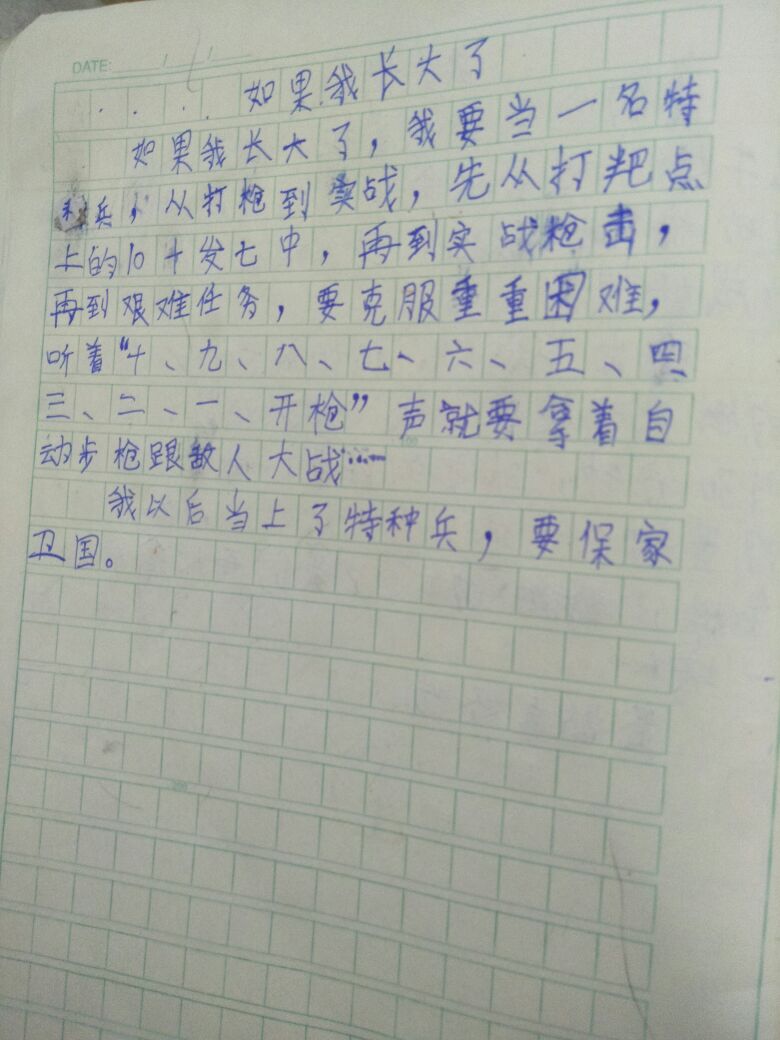 DATE: / /
如果我长大了
如果我长大了，我要当一名特
种兵，从打枪到实战，先从打靶点
上的10十发七中，再到实战枪击，
再到艰难任务，要克服重重困难，
听着“十、九、八、七、六、五、四
三、二、一、开枪”声就要拿着自
动步枪跟敌人大战……
我以后当上了特种兵，要保家
卫国。